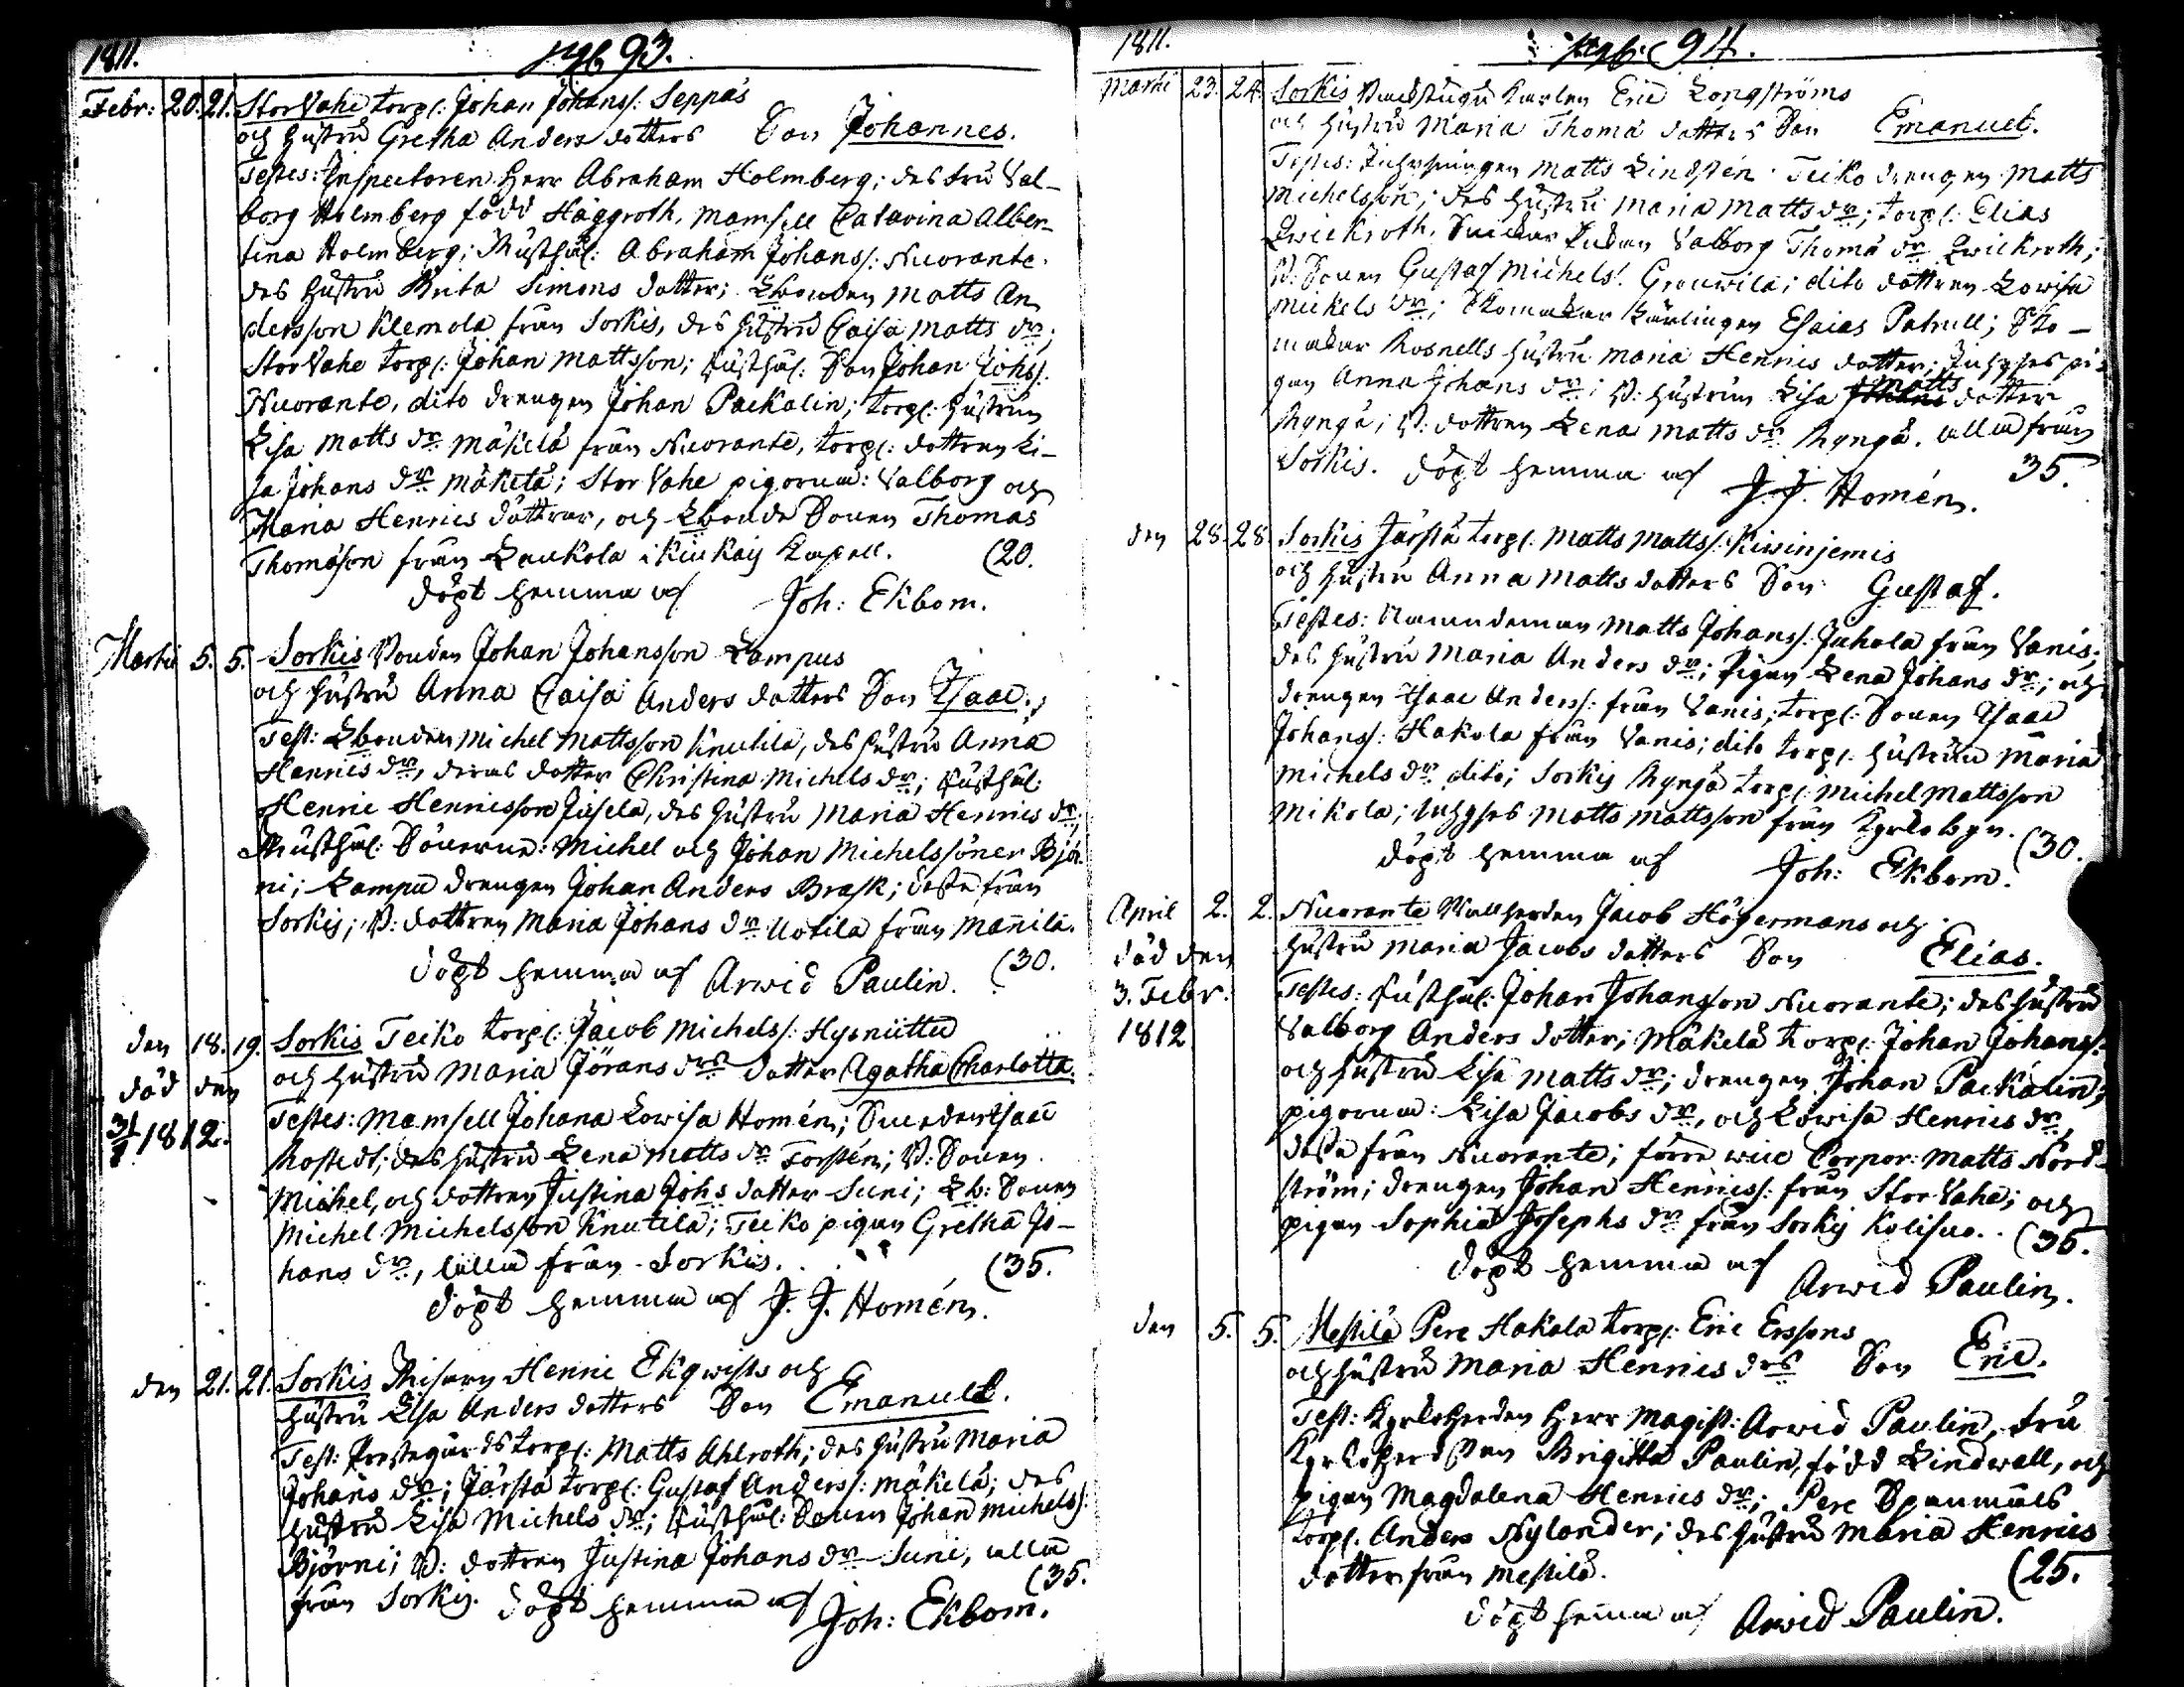 1811.
93.
Febr: 20. 21. StorVahe torp: Johan Johans: Seppäs
och hustru Gretha Anders dotters Son Johannes.
Testes: Inspectoren Herr Abraham Holmberg; des fru Val-
borg Holmberg född Häggroth, Mamsell Catarina Alber-
tina Holmberg; Rusthål: Abraham Johans: Nuorante.
des hustru Brita Simons dotter; Lbonden Matts An
dersson Klemola från Sorkis, des hustru Caisa Matts dr;
StorVahe torp: Johan Mattsson; Rusthål: Son Johan Johs:
Nuorante, dito drengen Johan Packalin; torp: hustrun
Lisa Matts dr Mäkelä från Nuorante, torp: dottren Li-
sa Johans dr Mäkelä; Stor Vahe pigorna: Valborg och
Maria Henrics döttrar, och Lbonde Sonen Thomas
Thomasson från Laukola i Kiukais Kapell. (20.
döpt hemma af Joh: Ekbom.
Martii 5. 5. Sorkis Bonden Johan Johansson Lampus
och hustru Anna Caisa Anders dotters Son Isaac.
Test: Lbonden Michel Mattsson Knutila, des hustru Anna
Henrics dr, deras dotter Christina Michels dr; Rusthål:
Henric Henricsson Jusela, des hustru Maria Henrics dr;
Rusthål: Sönerne: Michel och Johan Michelssöner Björ
ni; Lampu drengen Johan Anders Brask; desse från
Sorkis; B: dottren Maria Johans dr Uotila från Mannila.
döpt hemma af Arwid Paulin. (30.
den 18. 19. Sorkis Teiko torp: Jacob Michels: Hysniittu
död den och hustru Maria Jörans drs dotter Agatha Charlotta.
1812. Testes: Mamsell Johana Lowisa Homén; Smeden Isaac
Rostedt; des hustru Lena Matts dr Forstén; B: Sonen
Michel, och dottren Justina Johs dotter Suni; Lb: Sonen
Michel Michelsson Knutila; Teiko pigan Gretha Jo-
hans dr, alla från Sorkis. (35.
döpt hemma af J. J. Homén.
den 21. 21. Sorkis Henric Ekqwists och
hustru Lisa Anders dotters Son Emanuel.
Test: Prestegårds torp: Matts Ahlroth; des hustru Maria
Johans dr; Järstä torp: Gustaf Anders: Mäkelä; des
hustru Lisa Michels dr; Rusthål: Sonen Johan Michels:
Björni; B: dottren Justina Johans dr Suni, alla
från Sorkis. (35.
döpt hemma af Joh: Ekbom.
1811.
94.
Martii 23. 24. Sorkis karlen Eric Longströms
och hustru Maria Thomä dotters Son Emanuel.
Testes: Matts Lindstén. Teiko drengen Matts
Michelsson; des hustru Maria Matts dr; torp: Elias
Qwickroth, Valborg Thomä dr Qwickroth;
B: Sonen Gustaf Michels: Grouwila; dito dottren Lowisa
Mickels dr; Skomakar Lärlingen Esaias Patrull; Sko-
makar Rosnells hustru Maria Henrics dotter; Inhyses pi-
gan Anna Johans dr; B: hustrun Lisa Matts dotter
Ryngä; B: dottren Lena Matts dr Ryngä. alla från
Sorkis. döpt hemma af J. J. Homén. 35.
den 28. 28. Sorkis Järstä torp: Matts Matts: Kiwinjemis
och hustru Anna Matts dotters Son Gustaf.
Testes: Nämndeman Matts Johans: Juhola från Vanis;
des hustru Maria Anders dr; Pigan Lena Johans dr; och
drengen Isaac Anders: från Vanis; torp: Sonen Isaac
Johans: Hakola från Vanis; dito torp: hustrun Maria
Michels dr dito; Sorkis Ryngä torp: Michel Mattsson
Mikola; Inhyses Matts Mattsson från Kyrkobyn. (30.
döpt hemma af Joh: Ekbom.
April 2. 2. Nuorante Vallherden Jacob Högermans och
död den hustru Maria Jacobs dotters Son Elias.
3. Febr: Testes: Rusthål: Johan Johansson Nuorante; des hustru
1812 Valborg Anders dotter; Mäkelä torp: Johan Johans:
och hustru Lisa Matts dr; drengen Johan Packalin;
pigorna: Lisa Jacobs dr, och Lowisa Henrics dr,
desse från Nuorante; förre wice Corpor: Matts Nord-
ström; drengen Johan Henrics: från Stor Vahe; och
pigan Sophia Josephs dr från Sorkis Kolisuo. (36.
döpt hemma af Arwid Paulin.
den 5. 5. Mestilä Pere Hakala torp: Eric Erssons
och hustru Maria Henrics drs Son Eric.
Test: Kyrkoherden Herr Magist: Arwid Paulin, fru
Kyrkoherdskan Brigitta Paulin, född Lindwall, och
pigan Magdalena Henrics dr; Pere Spennäls
torp: Anders Nylander; des hustru Maria Henrics
dotter från Mestilä. (25.
döpt hemma af Arwid Paulin.